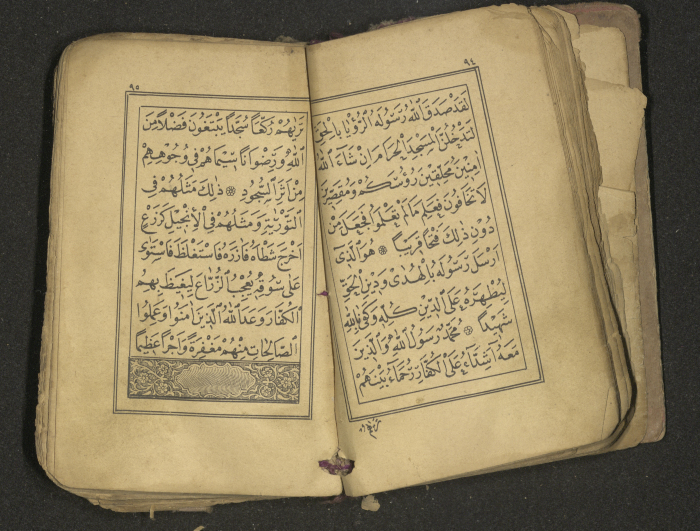 ٩٤
لَقَدْ صَدَقَ اللّٰهُ رَسُولَهُ الرُّؤْيَا بِالْحَقِّ
لَتَدْخُلُنَّ الْمَسْجِدَ الْحَرَامَ اِنْ شَاءَ اللّٰهُ
اٰمِنِينَ مُحَلِّقِينَ رُؤُسَكُمْ وَمُقَصِّرِينَ
لَا تَخَافُونَ فَعَلِمَ مَا لَمْ تَعْلَمُوا فَجَعَلَ مِنْ
دُونِ ذٰلِكَ فَتْحًا قَرِيبًا ۞ هُوَ الَّذِى
اَرْسَلَ رَسُولَهُ بِالْهُدٰى وَدِينِ الْحَقِّ
لِيُظْهِرَهُ عَلَى الدِّينِ كُلِّهِ وَكَفٰى بِاللّٰهِ
شَهِيدًا ۞ مُحَمَّدٌ رَسُولُ اللّٰهِ وَالَّذِينَ
مَعَهُ اَشِدَّاءُ عَلَى الْكُفَّارِ رُحَمَاءُ بَيْنَهُمْ
تَرٰيهُمْ
٩٥
تَرٰيهُمْ رُكَّعًا سُجَّدًا يَبْتَغُونَ فَضْلًا مِنَ
اللّٰهِ وَرِضْوَانًا سِيمَاهُمْ فِى وُجُوهِهِمْ
مِنْ اَثَرِ السُّجُودِ ۞ ذٰلِكَ مَثَلُهُمْ فِى
التَّوْرٰيةِ وَمَثَلُهُمْ فِى الْاِنْجِيلِ كَزَرْعٍ
اَخْرَجَ شَطْاَهُ فَاٰزَرَهُ فَاسْتَغْلَظَ فَاسْتَوٰى
عَلٰى سُوقِهِ يُعْجِبُ الزُّرَّاعَ لِيَغِيظَ بِهِمُ
الْكُفَّارَ وَعَدَ اللّٰهُ الَّذِينَ اٰمَنُوا وَعَمِلُوا
الصَّالِحَاتِ مِنْهُمْ مَغْفِرَةً وَاَجْرًا عَظِيمًا